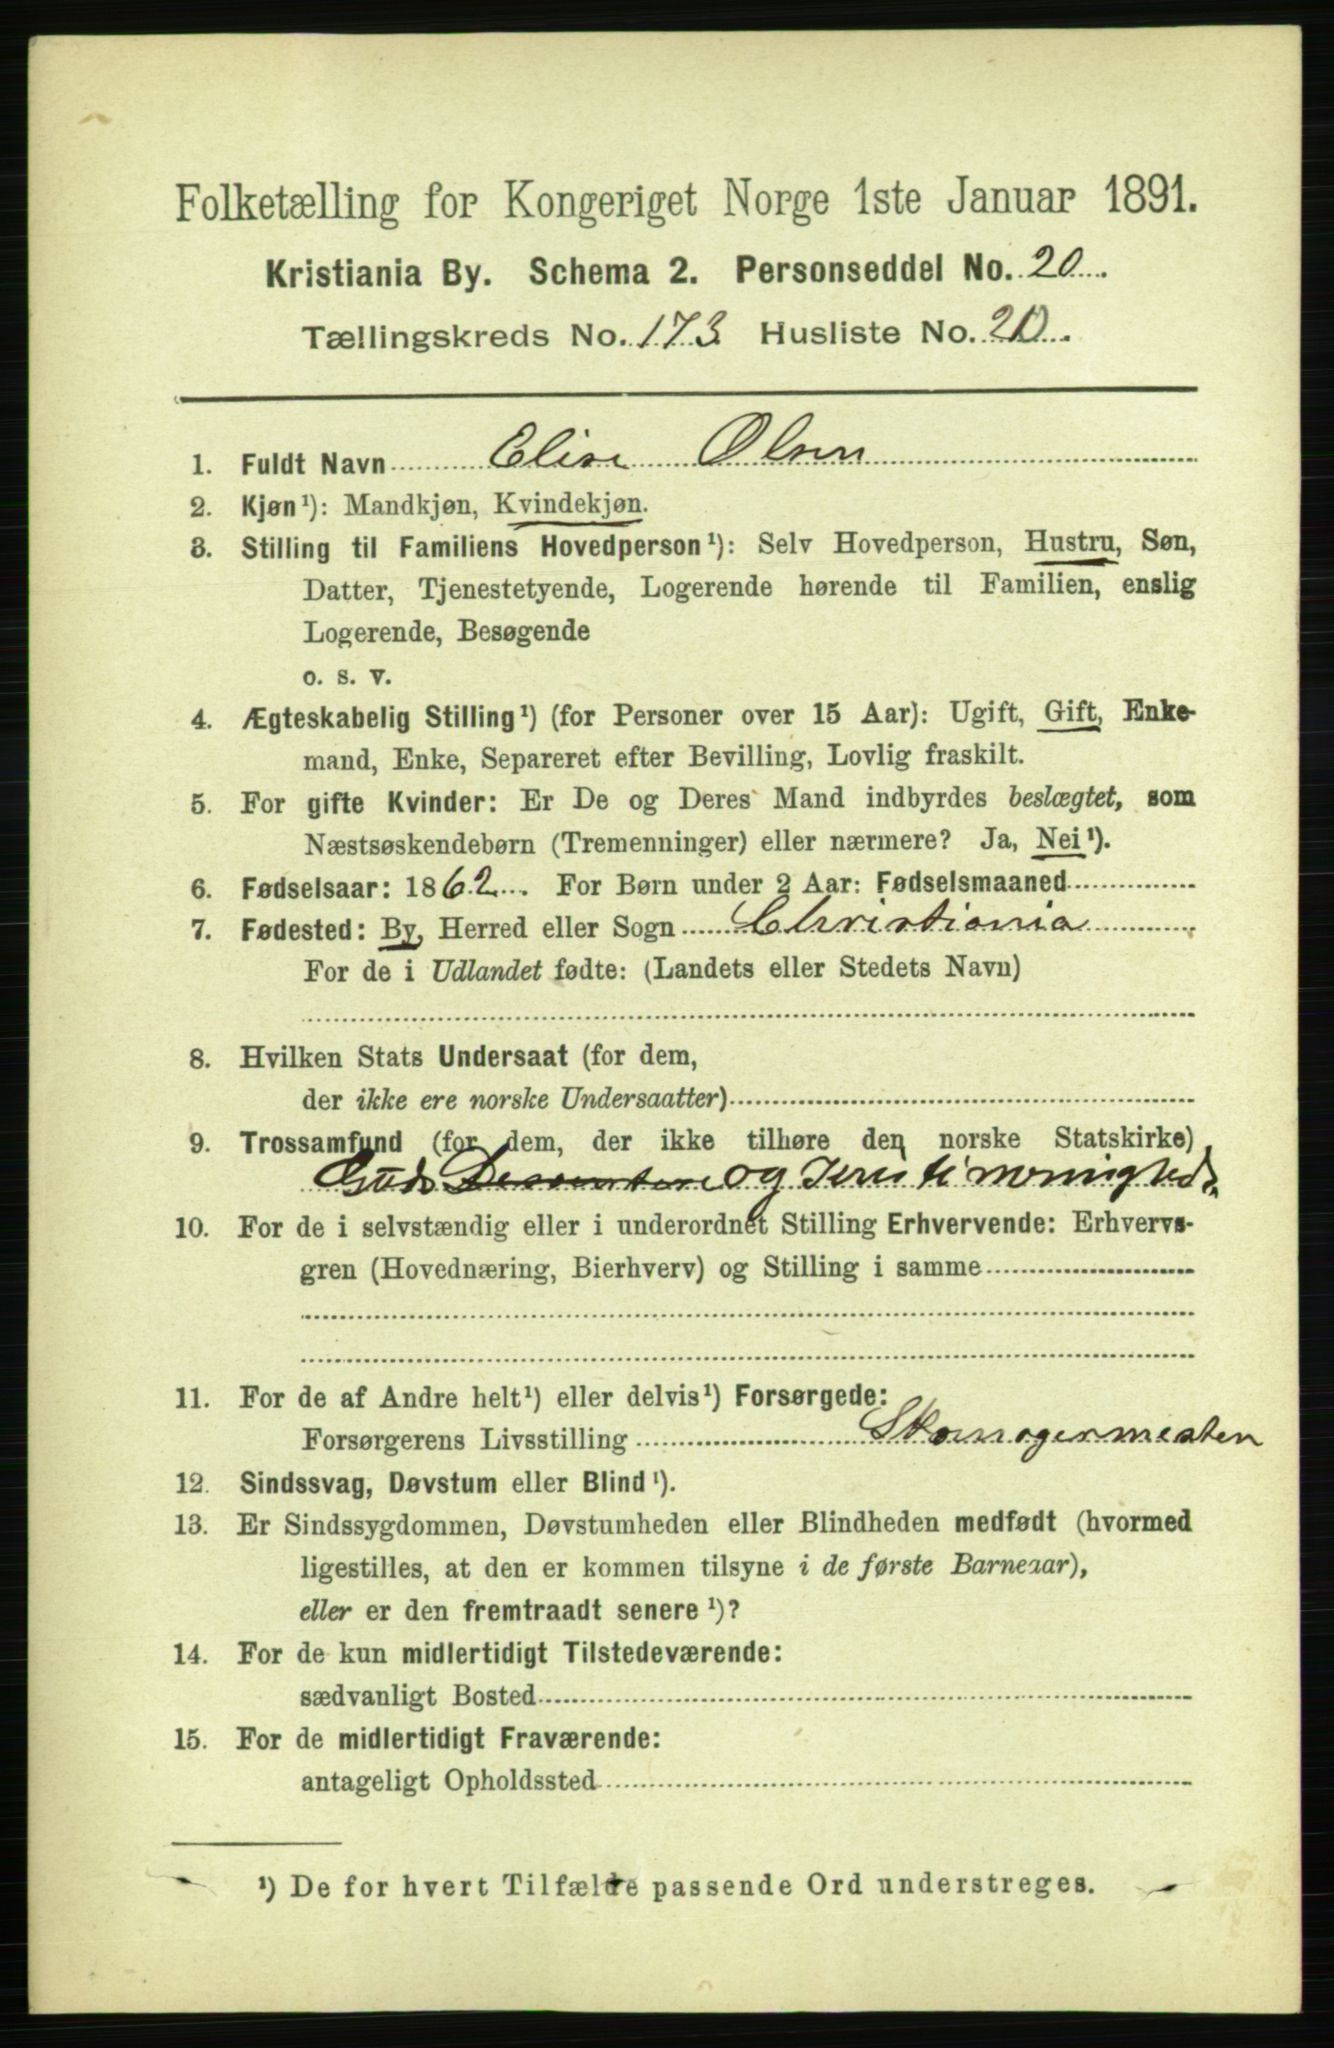 Folketælling for Kongeriget Norge 1ste Januar 1891.
Kristiania By. Schema 2. Personseddel No. 20
Tællingskreds No. 173 Husliste No. 20
1. Fuldt Navn Elise Olsen
2. Kjøn¹): Mandkjøn, Kvindekjøn.
3. Stilling til Familiens Hovedperson¹): Selv Hovedperson, Hustru, Søn,
Datter, Tjenestetyende, Logerende hørende til Familien, enslig
Logerende, Besøgende
o. s. v.
4. Ægteskabelig Stilling¹) (for Personer over 15 Aar): Ugift, Gift, Enke-
mand, Enke, Separeret efter Bevilling, Lovlig fraskilt.
5. For gifte Kvinder: Er De og Deres Mand indbyrdes beslægtet, som
Næstsøskendebørn (Tremenninger) eller nærmere? Ja, Nei¹).
6. Fødselsaar: 1862 For Børn under 2 Aar: Fødselsmaaned
7. Fødested: By, Herred eller Sogn Christiania
For de i Udlandet fødte: (Landets eller Stedets Navn)
8. Hvilken Stats Undersaat (for dem,
der ikke ere norske Undersaatter)
9. Trossamfund (for dem, der ikke tilhøre den norske Statskirke)
Guds og Kristi menighed
10. For de i selvstændig eller i underordnet Stilling Erhvervende: Erhvervs-
gren (Hovednæring, Bierhverv) og Stilling i samme
11. For de af Andre helt¹) eller delvis¹) Forsørgede:
Forsørgerens Livsstilling Skomagermesten
12. Sindssvag, Døvstum eller Blind¹).
13. Er Sindssygdommen, Døvstumheden eller Blindheden medfødt (hvormed
ligestilles, at den er kommen tilsyne i de første Barneaar),
eller er den fremtraadt senere¹)?
14. For de kun midlertidigt Tilstedeværende:
sædvanligt Bosted
15. For de midlertidigt Fraværende:
antageligt Opholdssted
¹) De for hvert Tilfælde passende Ord understreges.